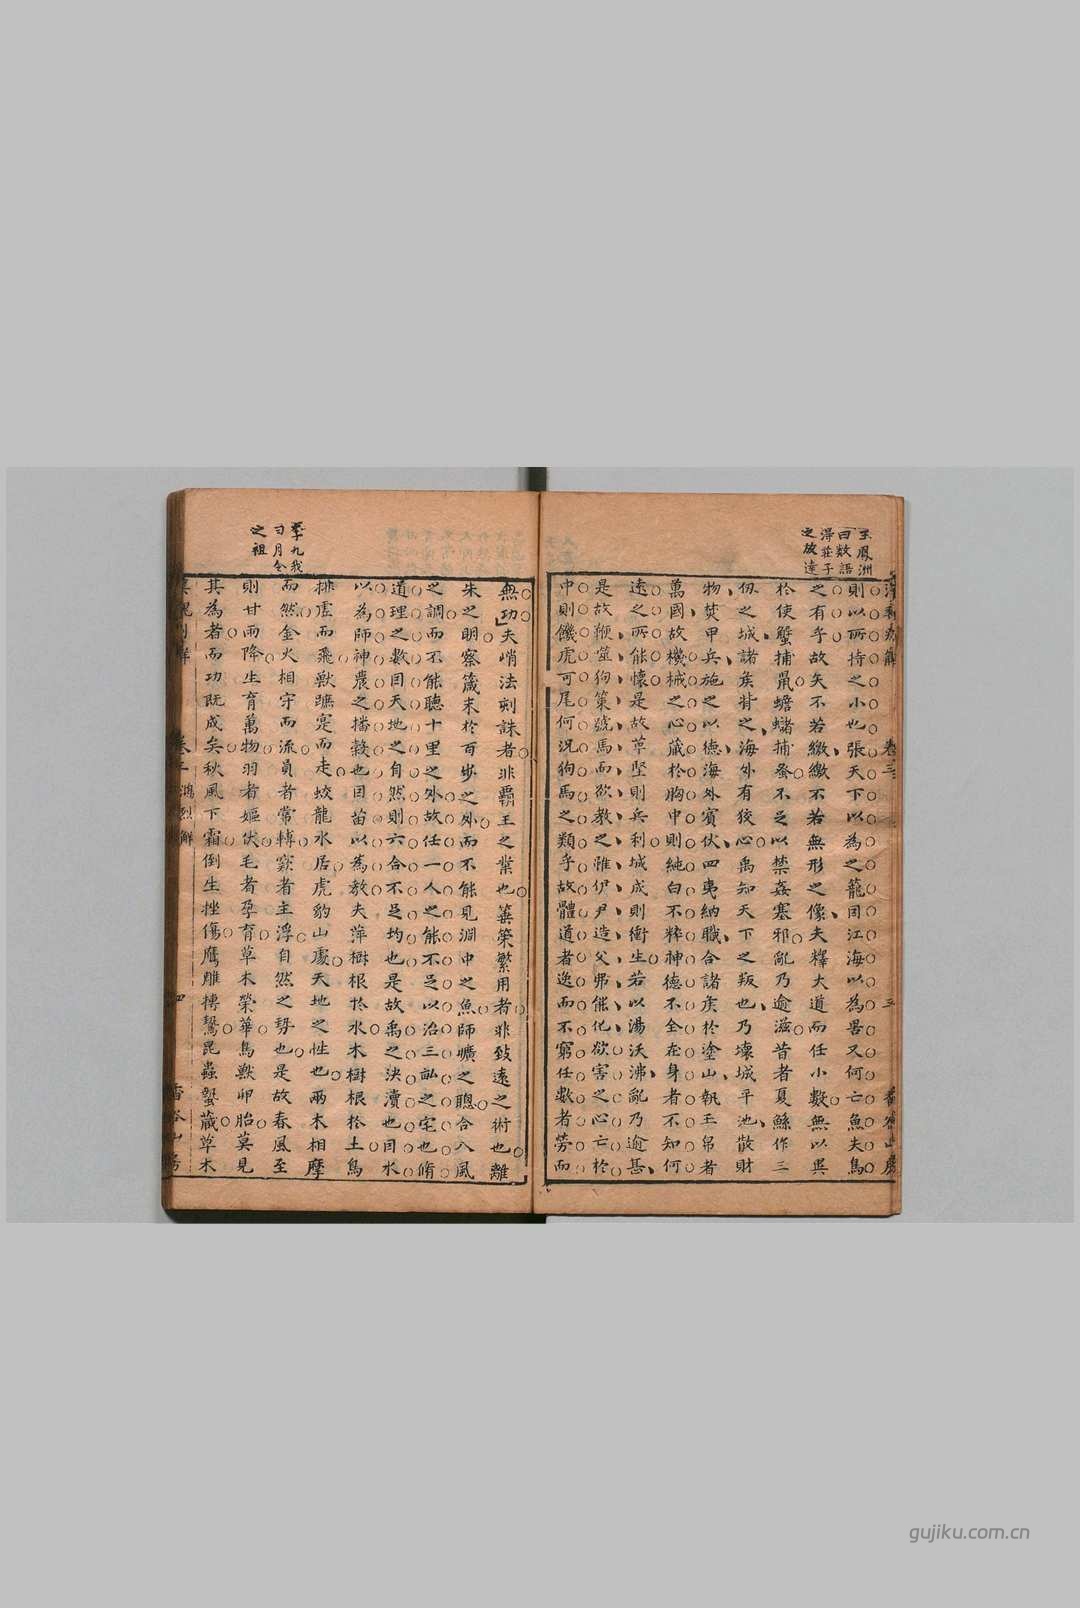 王鳳洲
曰數語
得莊子
之放達
則以所持之小也張天下以為之籠因江海以為罟又何亡魚失鳥
之有乎故矢不若繳繳不若無形之像夫釋大道而任小數無以異
於使蟹捕鼠蟾蠩捕蚤不足以禁姦塞邪亂乃逾滋昔者夏鯀作三
仞之城諸矦背之海外有狡心禹知天下之叛也乃壞城平池散財
物焚甲兵施之以德海外賓伏四夷納職合諸矦於塗山執玉帛者
萬國故機械之心藏於胸中則純白不粹神德不全在身者不知何
遠之所能懷是故革堅則兵利城成則衝生若以湯沃沸亂乃逾甚
是故鞭噬狗策蹏馬而欲教之雖伊尹造父弗能化欲害之心亡於
中則饑虎可尾何況狗馬之類乎故體道者逸而不窮任數者勞而
卷三
三
李九我
曰月令
之祖
無功夫峭法刻誅者非霸王之業也箠策繁用者非致遠之術也離
朱之明察箴末於百步之外而不能見淵中之魚師曠之聰合八風
之調而不能聽十里之外故任一人之能不足以治三畝之宅也脩
道理之數因天地之自然則六合不足均也是故禹之決瀆也因水
以為師神農之播穀也因苗以為教夫萍樹根於水木樹根於土鳥
排虛而飛獸蹠实而走蛟龍水居虎豹山處天地之性也兩木相摩
而然金火相守而流員者常轉窾者主浮自然之勢也是故春風至
則甘雨降生育萬物羽者嫗伏毛者孕育草木榮華鳥獸卵胎莫見
其為者而功既成矣秋風下霜倒生挫傷鷹鵰搏鷙昆蟲蟄藏草木
卷三
鴻烈解
四